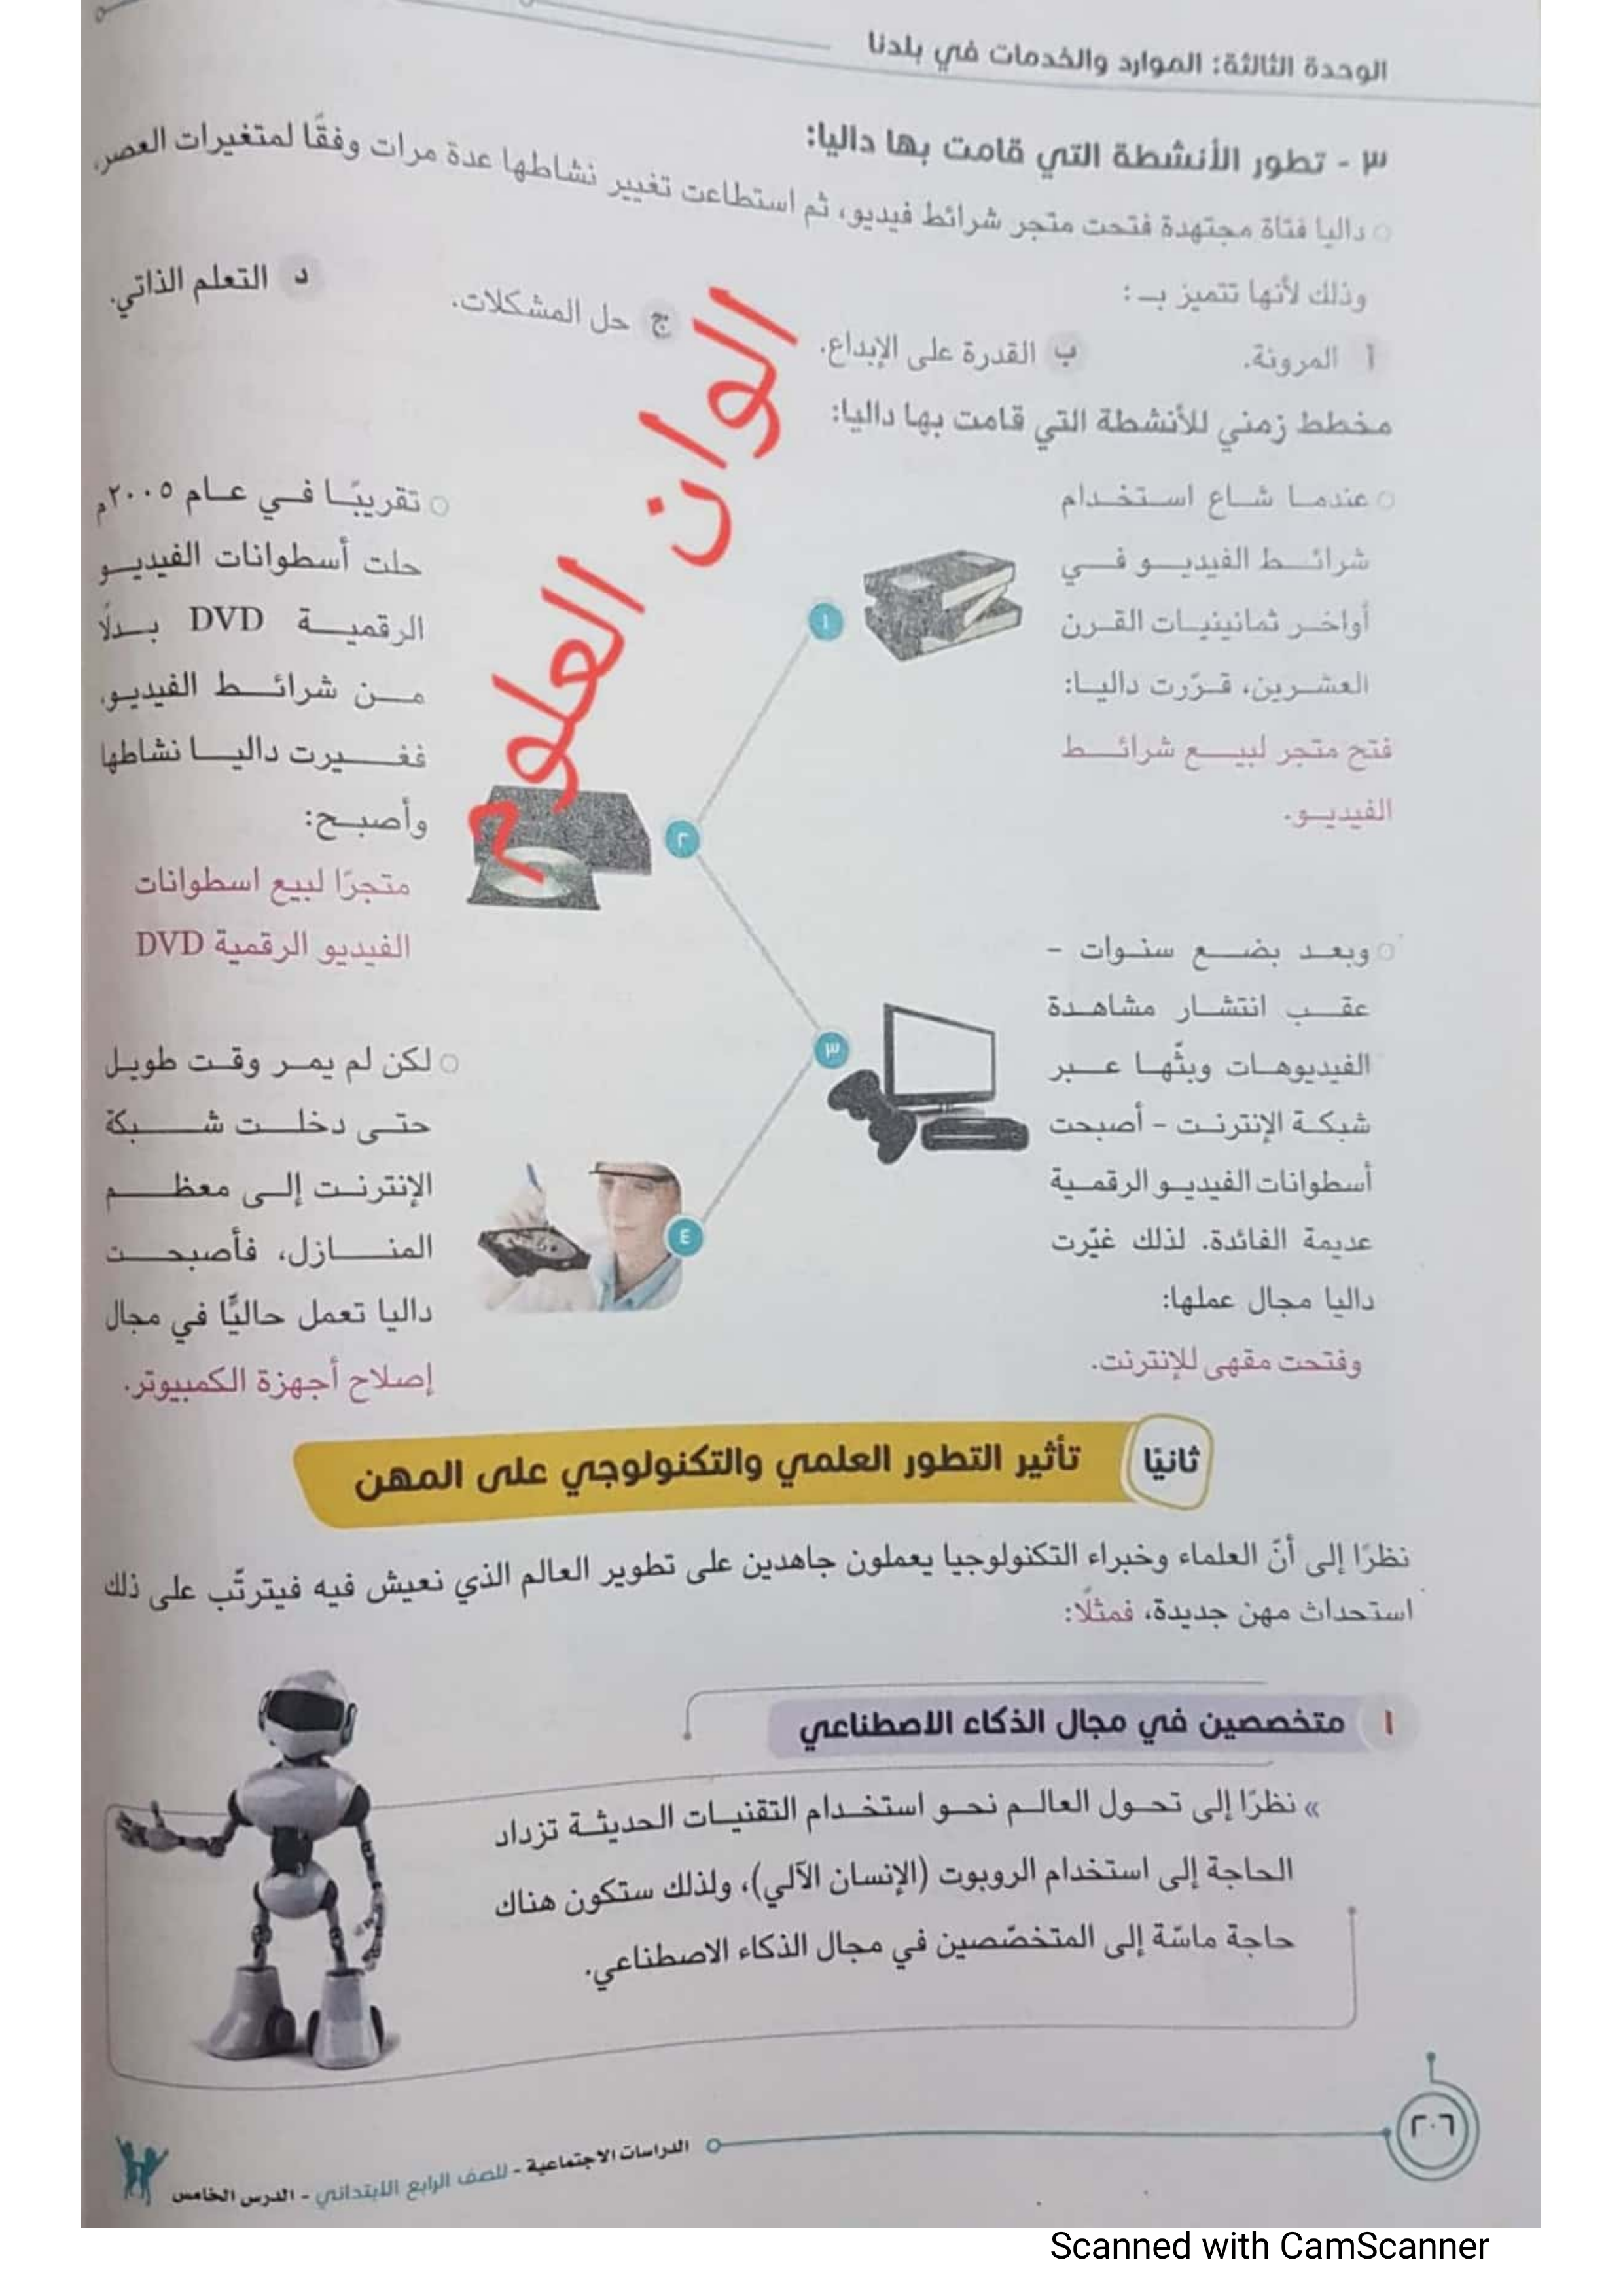 الوحدة الثالثة: الموارد والخدمات في بلدنا
٣ - تطور الأنشطة التي قامت بها داليا:
داليا فتاة مجتهدة فتحت متجر شرائط فيديو، ثم استطاعت تغيير نشاطها عدة مرات وفقًا لمتغيرات العصر،
وذلك لأنها تتميز بـ :
أ المرونة. ب القدرة على الإبداع. ج حل المشكلات. د التعلم الذاتي.
مخطط زمني للأنشطة التي قامت بها داليا:
١
عندما شاع استخدام
شرائط الفيديو في
أواخر ثمانينيات القرن
العشرين، قرّرت داليا:
فتح متجر لبيع شرائط
الفيديو.
٢
تقريبًا في عام ٢٠٠٥م
حلت أسطوانات الفيديو
الرقمية DVD بدلًا
من شرائط الفيديو،
فغيرت داليا نشاطها
وأصبح:
متجرًا لبيع اسطوانات
الفيديو الرقمية DVD
٣
وبعد بضع سنوات -
عقب انتشار مشاهدة
الفيديوهات وبثّها عبر
شبكة الإنترنت - أصبحت
أسطوانات الفيديو الرقمية
عديمة الفائدة. لذلك غيّرت
داليا مجال عملها:
وفتحت مقهى للإنترنت.
٤
لكن لم يمر وقت طويل
حتى دخلت شبكة
الإنترنت إلى معظم
المنازل، فأصبحت
داليا تعمل حاليًّا في مجال
إصلاح أجهزة الكمبيوتر.
الوان العلوم
ثانيًا تأثير التطور العلمي والتكنولوجي على المهن
نظرًا إلى أنّ العلماء وخبراء التكنولوجيا يعملون جاهدين على تطوير العالم الذي نعيش فيه فيترتّب على ذلك
استحداث مهن جديدة، فمثلًا:
١ متخصصين في مجال الذكاء الاصطناعي
» نظرًا إلى تحول العالم نحو استخدام التقنيات الحديثة تزداد
الحاجة إلى استخدام الروبوت (الإنسان الآلي)، ولذلك ستكون هناك
حاجة ماسّة إلى المتخصّصين في مجال الذكاء الاصطناعي.
٢٠٦
الدراسات الاجتماعية - للصف الرابع الابتدائي - الدرس الخامس
Scanned with CamScanner